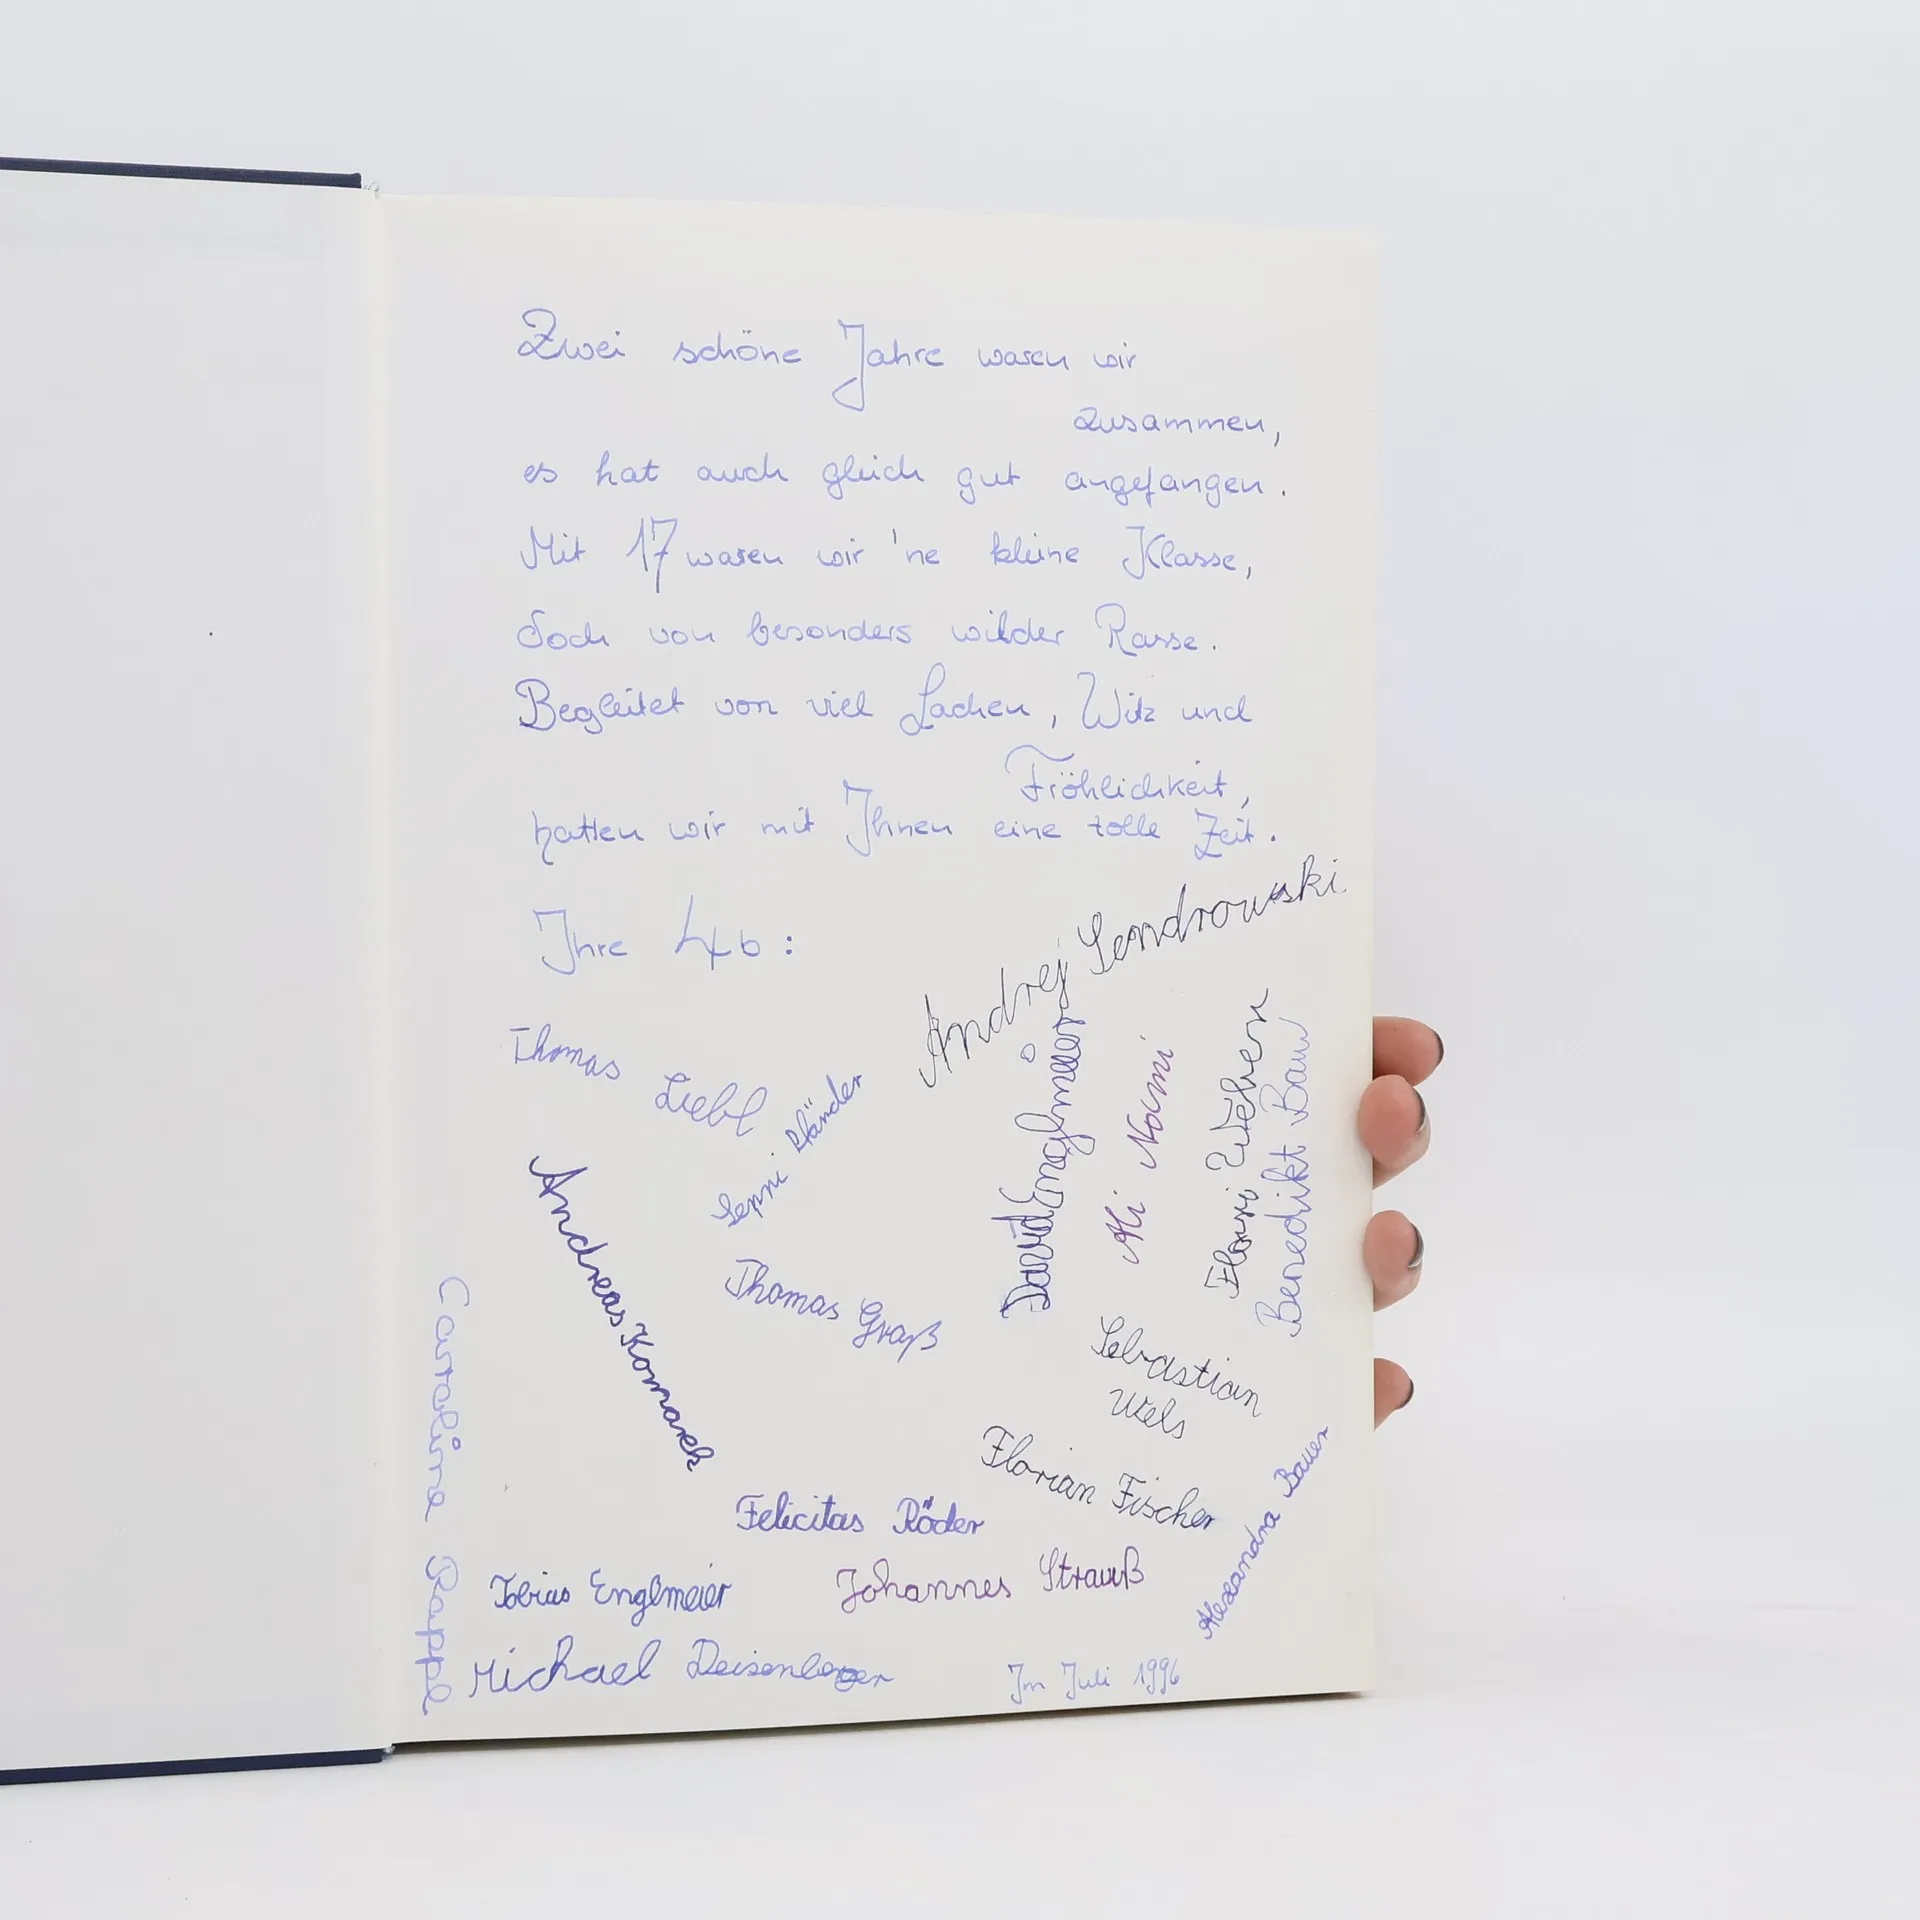 Zwei schöne Jahre waren wir
zusammen,
es hat auch gleich gut angefangen.
Mit 17 waren wir 'ne kleine Klasse,
doch von besonders wilder Rasse.
Begleitet von viel Lachen, Witz und
Fröhlichkeit,
hatten wir mit Ihnen eine tolle Zeit.
Ihre 4b:
Andrej Sendrowski
Thomas Liebl
Ständer
David Englmeier
Ali
Weber
Benedikt
Andreas Komarek
Thomas Graß
Sebastian
Wels
Florian Fischer
Alexandra Bauer
Felicitas Röder
Tobias Englmeier
Johannes Strauß
Carolina Rappl
Michael
Im Juli 1996